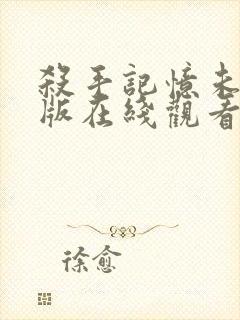 殺手記憶未
版在綫觀看
徐愈